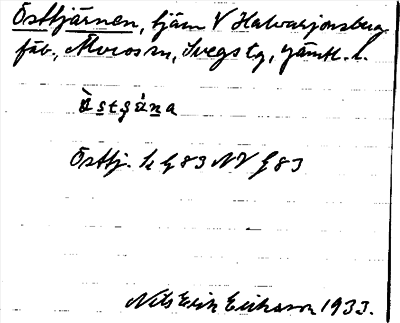 Östtjärnen, tjärn V Halvarjonsberg
fäb., Älvros sn, Svegs tg, Jämtl. l.
östgä́na
Östtj. k G83 NV G83
Nils Erik Eriksson 1933.